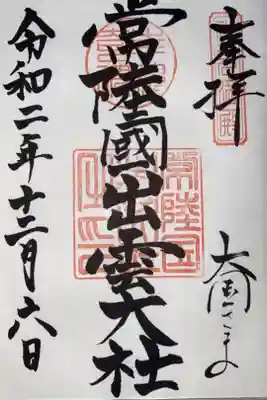 奉拝
大国さまの
常陸國出雲大社
令和二年十二月六日